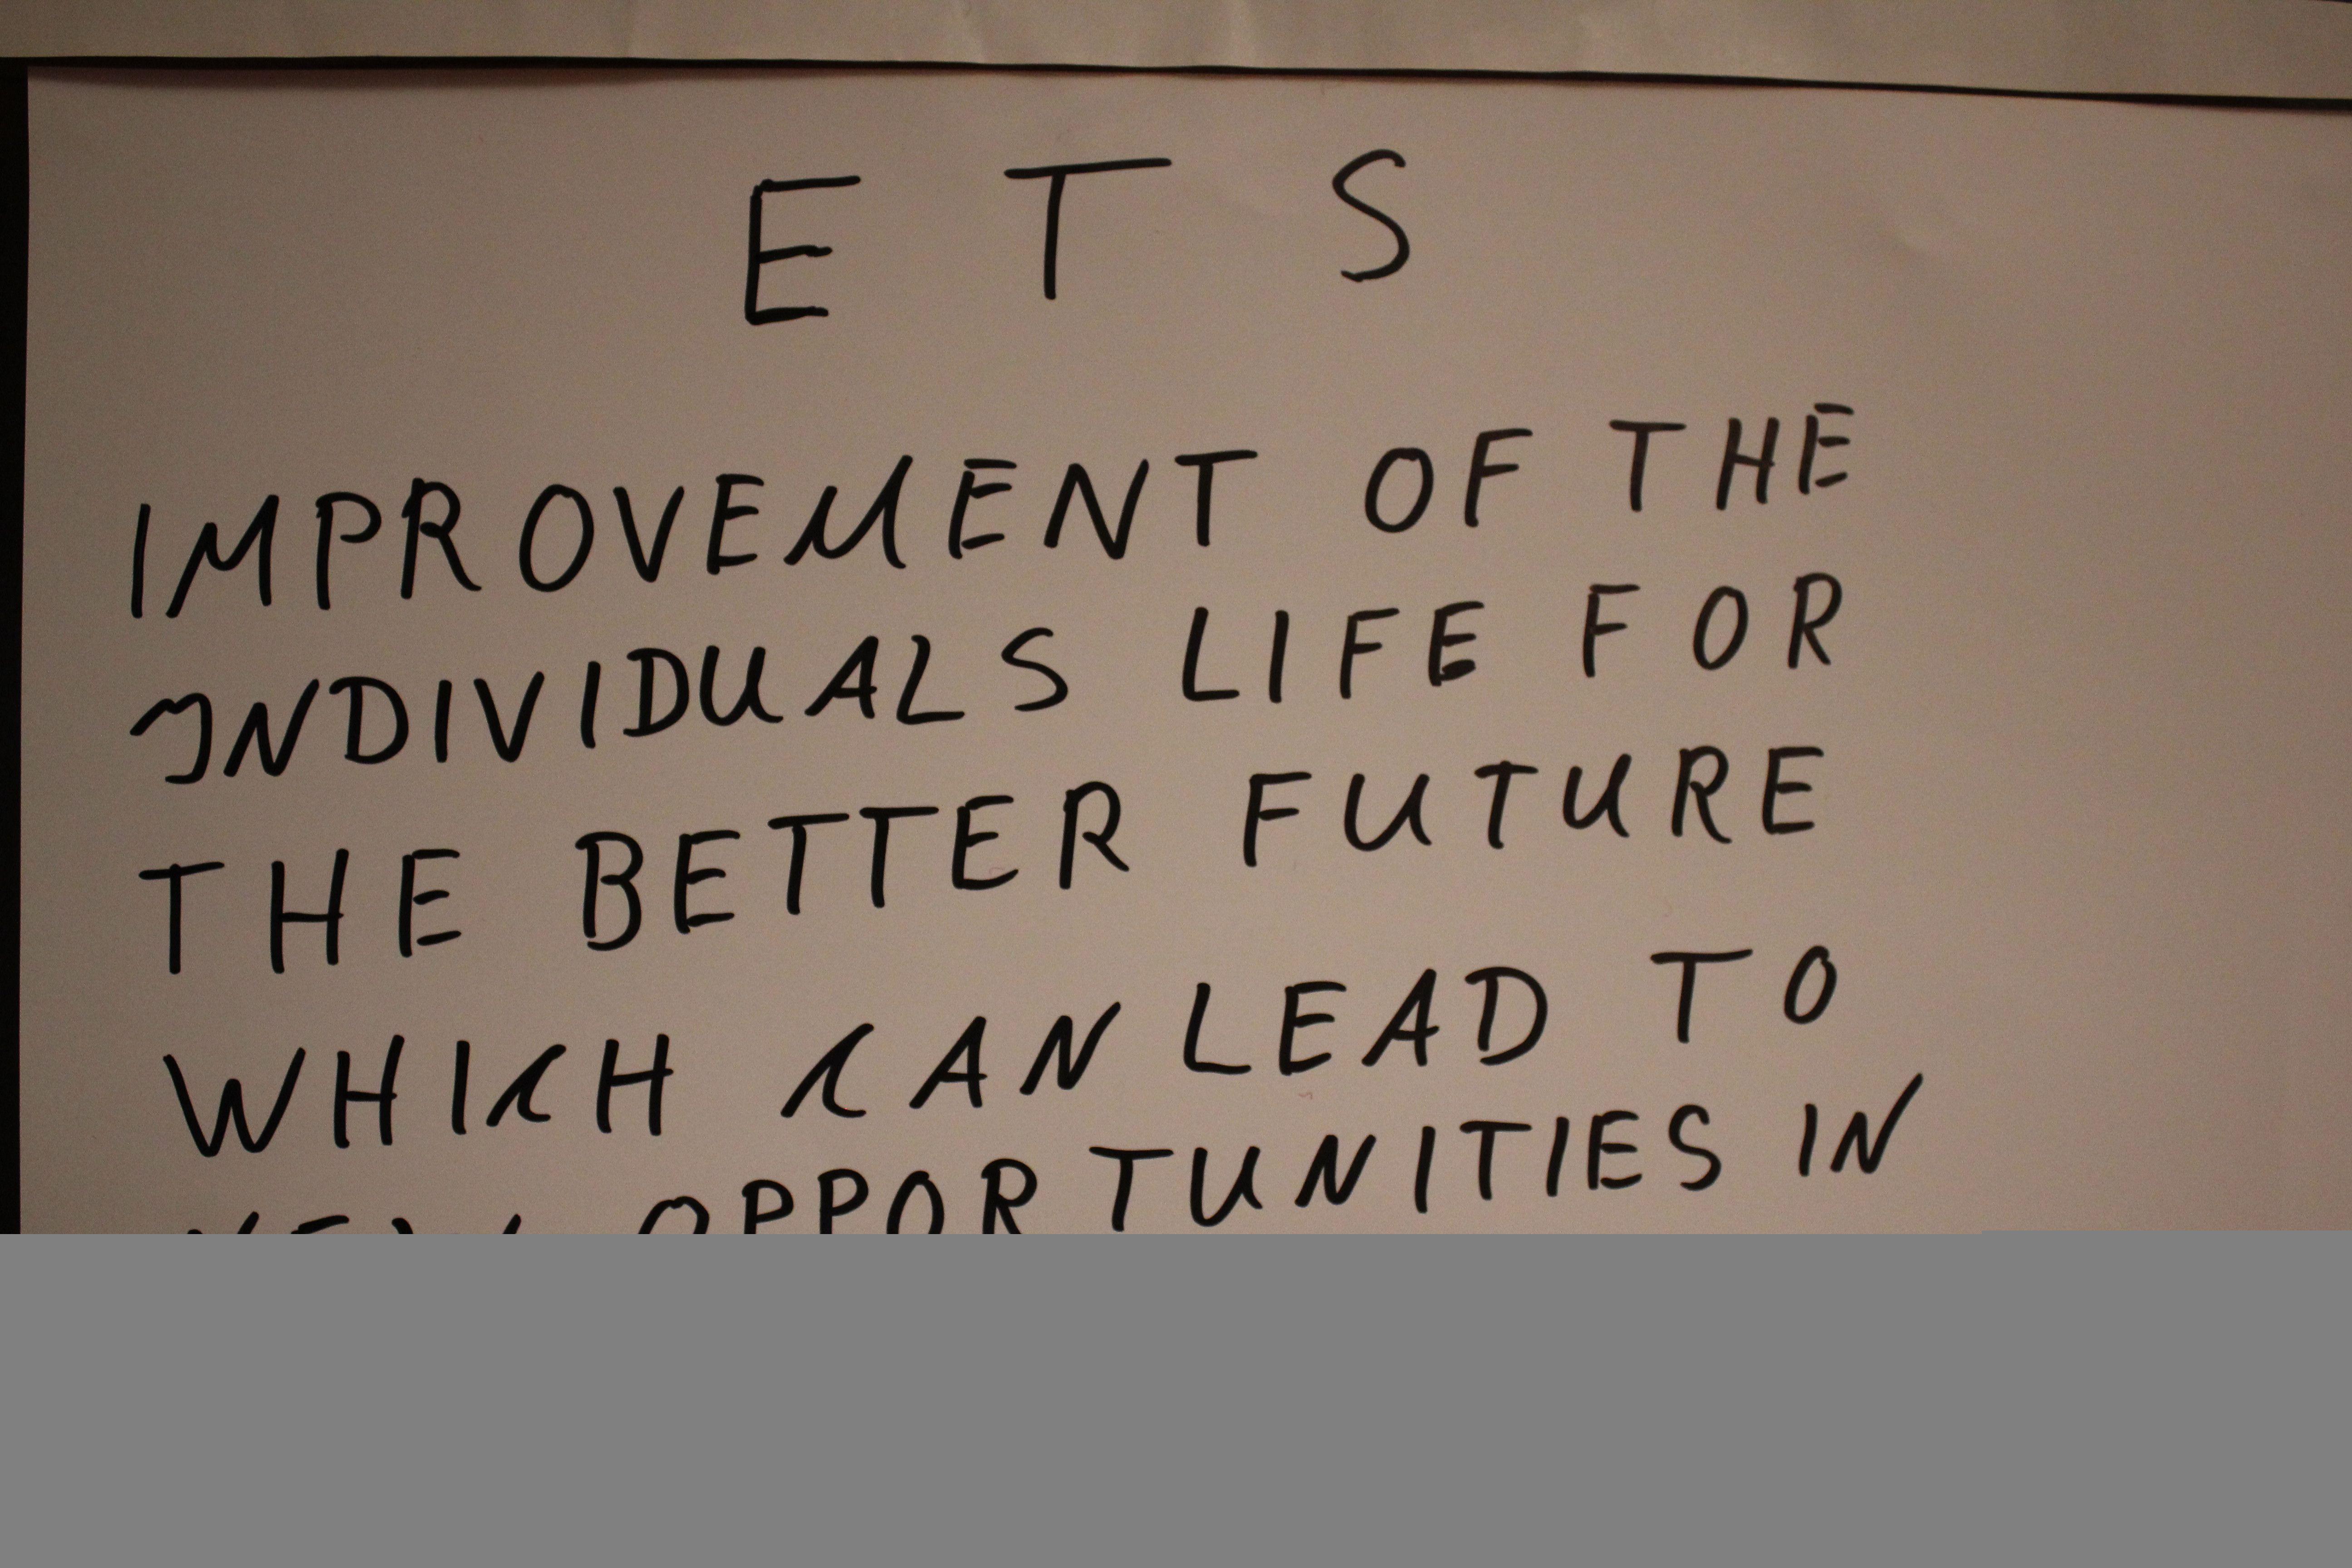 E T S
IMPROVEMENT OF THE
INDIVIDUALS LIFE FOR
THE BETTER FUTURE
WHICH CAN LEAD TO
OPPORTUNITIES IN